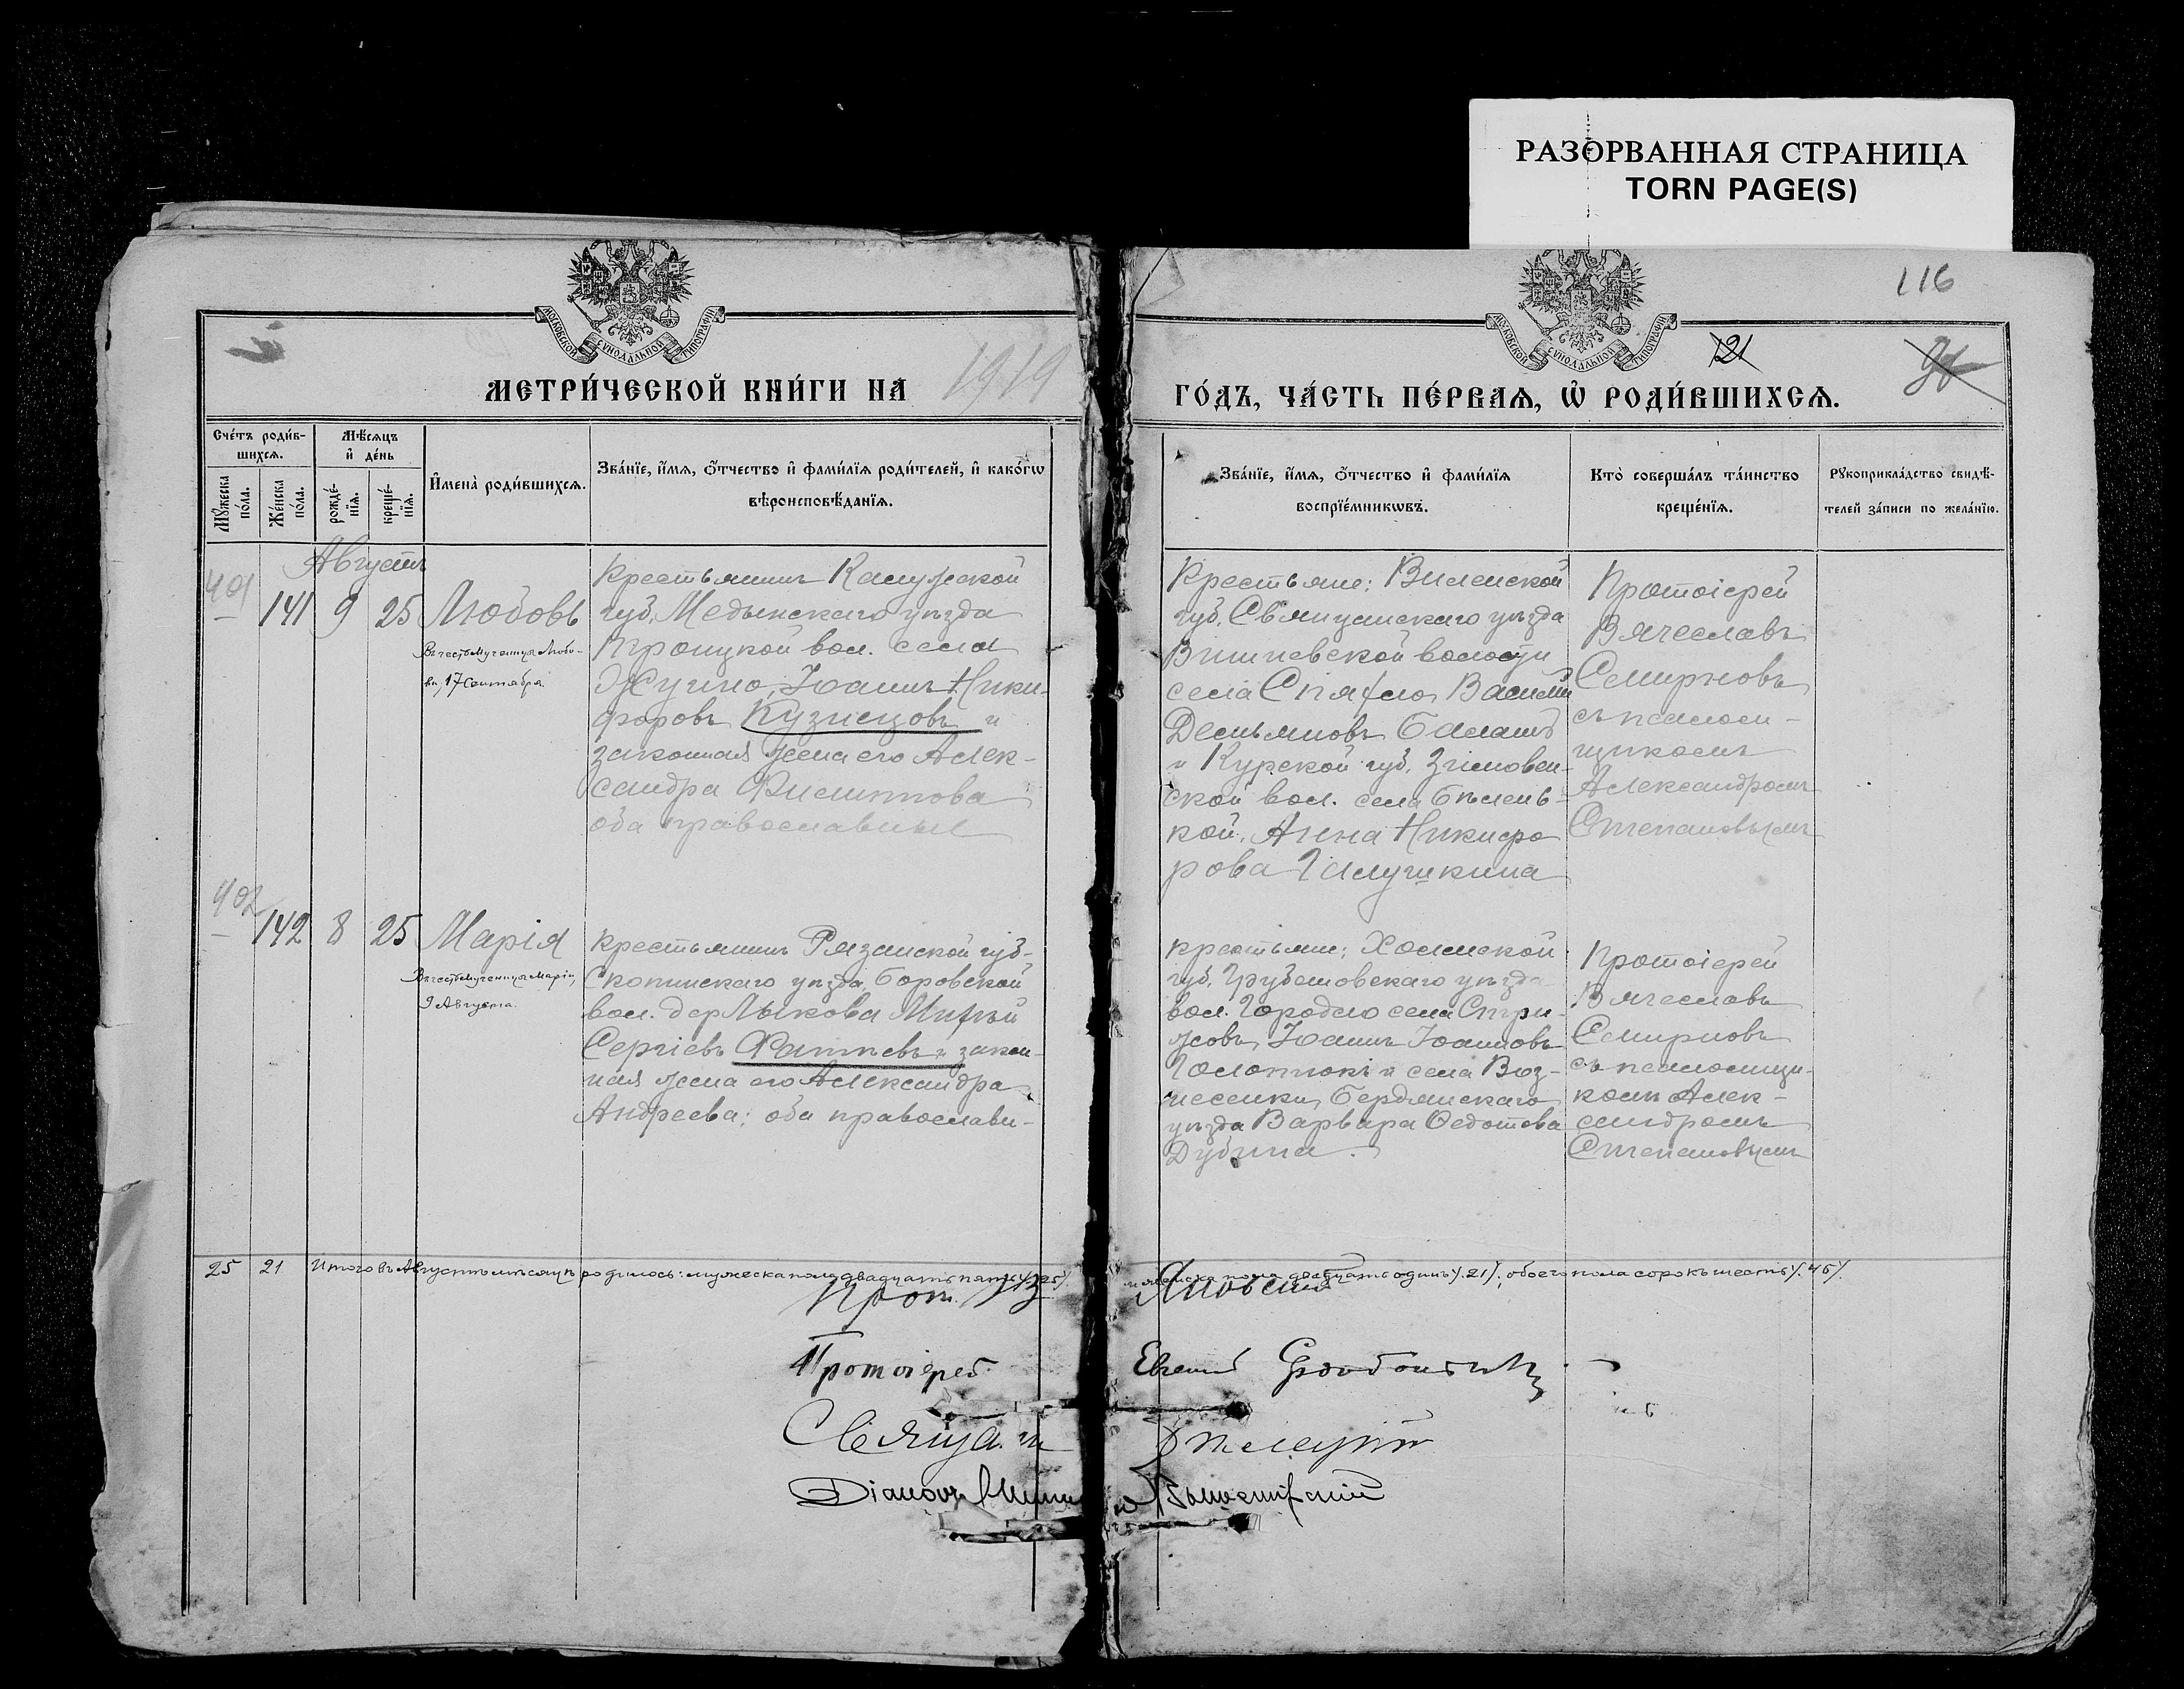 РАЗОРВАННАЯ СТРАНИЦА
TORN PAGE(S)
116
МОСКОВСКОЙ СѴНОДАЛЬНОЙ ТИПОГРАФІИ
МОСКОВСКОЙ СѴНОДАЛЬНОЙ ТИПОГРАФІИ
21
МЕТРИ́ЧЕСКОЙ КНИ́ГИ НА 1919
ГО́ДЪ, ЧА́СТЬ ПЕ́РВАѦ, Ѿ РОДИ́ВШИХСѦ.
Сче́тъ роди́в-
шихсѧ.
Мѣ́сѧцъ
и҆ де́нь
Мꙋ́жеска
по́ла.
Же́нска
по́ла.
рожде́-
нїѧ.
креще́-
нїѧ.
И҆мена̀ роди́вшихсѧ.
Зва́нїе, и҆́мѧ, ѻ҆́тчество и҆ фами́лїѧ роди́телей, и҆ како́гѡ
вѣроисповѣ́данїѧ.
Зва́нїе, и҆́мѧ, ѻ҆́тчество и҆ фами́лїѧ
воспрїе́мникѡвъ.
Кто̀ соверша́лъ та́инство
креще́нїѧ.
Рꙋкоприкла́дство свидѣ́-
телей за́писи по жела́нїю.
Августъ
401
— 141 9 25 Любовь
Въ честь Мученицы Любо-
ви, 17 Сентября.
Крестьянинъ Калужской
губ. Медынскаго уѣзда
вол. села
Іоаннъ Ники-
форовъ Кузнецовъ и
законная жена его Алек-
сандра Филиппова
оба православные
Крестьяне: Виленской
губ. Свянцянскаго уѣзда
Вишневской волости
села Василій
Демьяновъ
и Курской губ.
ской вол. села Бѣлень-
кой, Анна Никифо
рова Галушкина
Протоіерей
Вячеславъ
Смирновъ
съ псаломщ-
щикомъ
Александромъ
Степановымъ
402
— 142 8 25 Марія
Въ честь Мученицы Маріи,
9 Августа.
Крестьянинъ Рязанской губ-
Скопинскаго уѣзда, Боровской
вол. дер Лыкова
Сергіевъ и закон-
ная жена его Александра
Андреева; оба православн-
Крестьяне: Холмской
губ. Грубешовскаго уѣзда
вол. Городло села Стри-
жовъ, Іоаннъ Іоанновъ
и села Воз-
несенки, Бердянскаго
уѣзда Варвара Ѳедотова
Дубина.
Протоіерей
Вячеславъ
Смирновъ
съ псаломщи-
комъ Алек-
сандромъ
Степановымъ
25 21 Итого въ Августѣ мѣсяцѣ родилось: мужеска пола двадцать пять /.25/.
женска пола двадцать одинъ /.21/, обоего пола сорокъ шесть /.46/.
Прот.
Протоіерей Евгеній
Священ.
Діаконъ